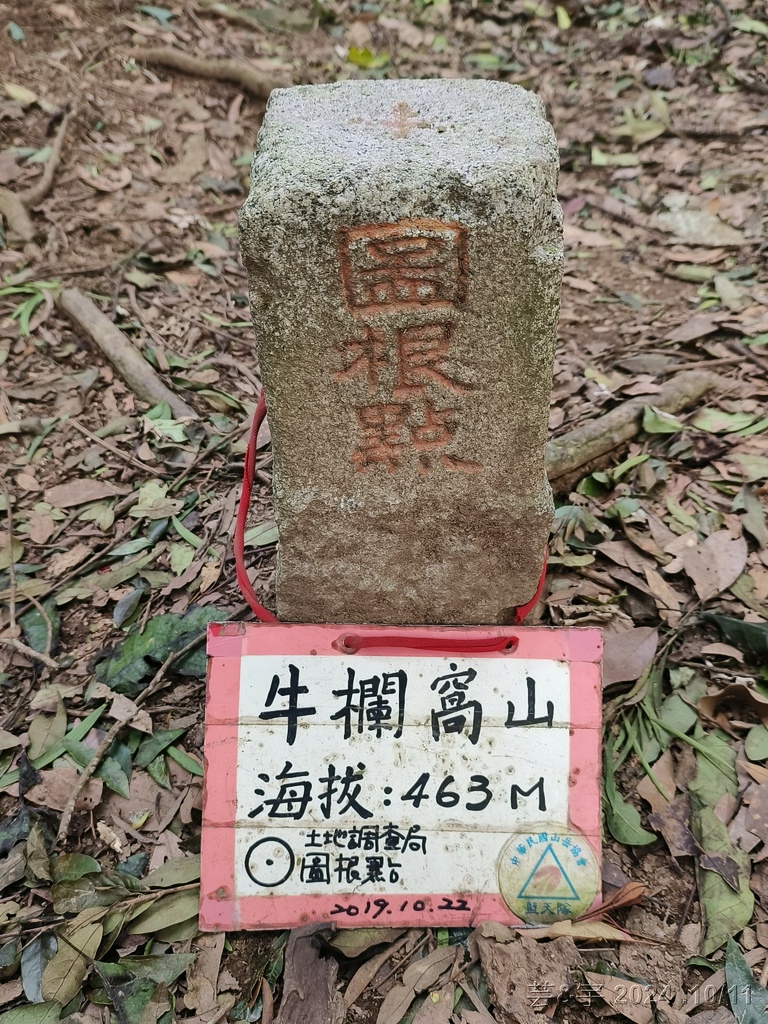 圖
根
點
牛欄窩山
海拔:463M
土地調查局
圖根點
2019.10.22
中華民國山岳協會
藍天隊
芸&宇 2024/10/11